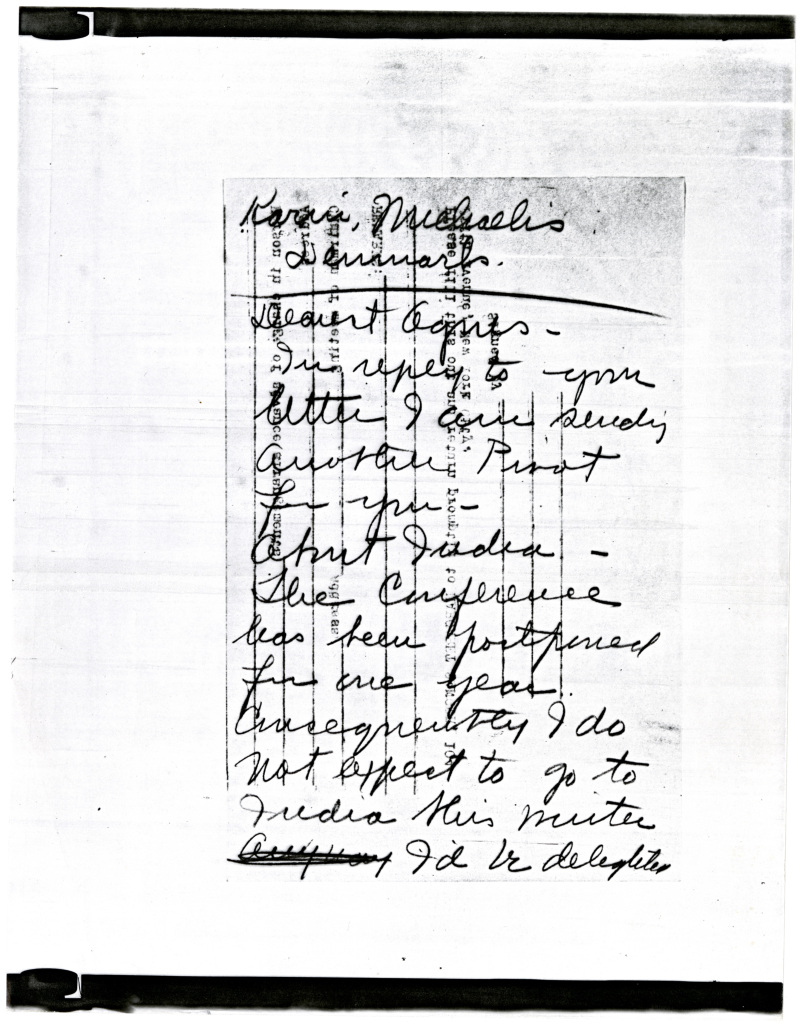 Karin, Michaelis
Denmark.
Dearest Agnes -
In reply to your
letter I am sending
another Pivot
for you -
About India -
The Conference
has been postponed
for one year.
Consequently I do
not expect to go to
India this winter
Anyway I'd be delighted